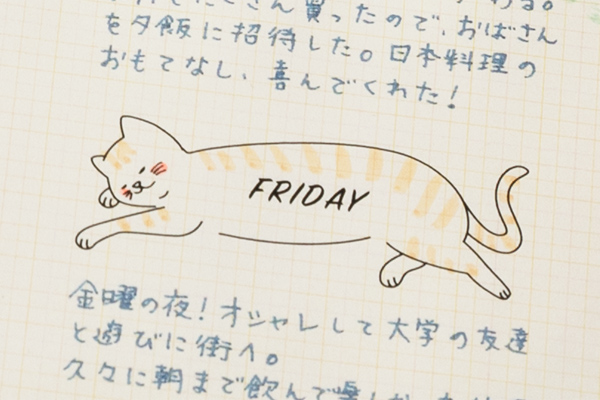 さん買ったので、おばさん
を夕飯に招待した。日本料理の
おもてなし、喜んでくれた!
FRIDAY
金曜の夜!オシャレして大学の友達
と遊びに街へ。
久々に朝まで飲んで